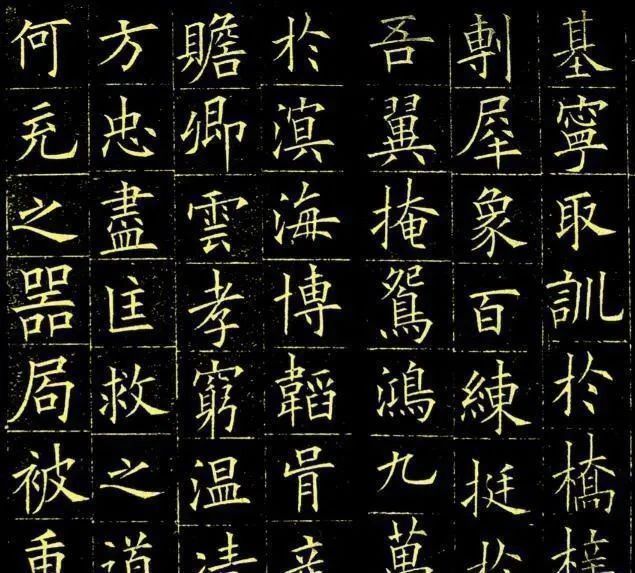 基寧取訓於橋梓
剸犀象百練挺於
吾翼掩鴛鴻九萬
於滇海博韜胥產
贍卿雲孝窮温清
方忠盡匡救之道
何充之器局被重